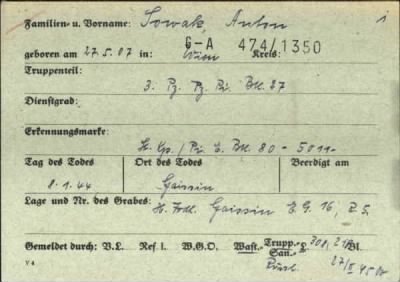 Familien- u. Vorname: Sowak, Anton 1
geboren am 27.5.07 in: Wien Kreis: G-A 474/1350
Truppenteil:
3. Pz. Pi. Btl. 27
Dienstgrad:
Erkennungsmarke:
Pi. E. Btl. 80 - 5011-
Tag des Todes Ort des Todes Beerdigt am
8.1.44 Gaissin
Lage und Nr. des Grabes:
H. Frdh. Gaissin E.G. 16, Z 5.
Gemeldet durch: V.L. Ref I. W.G.O. Wast.-Trupp.-San.-
V 4